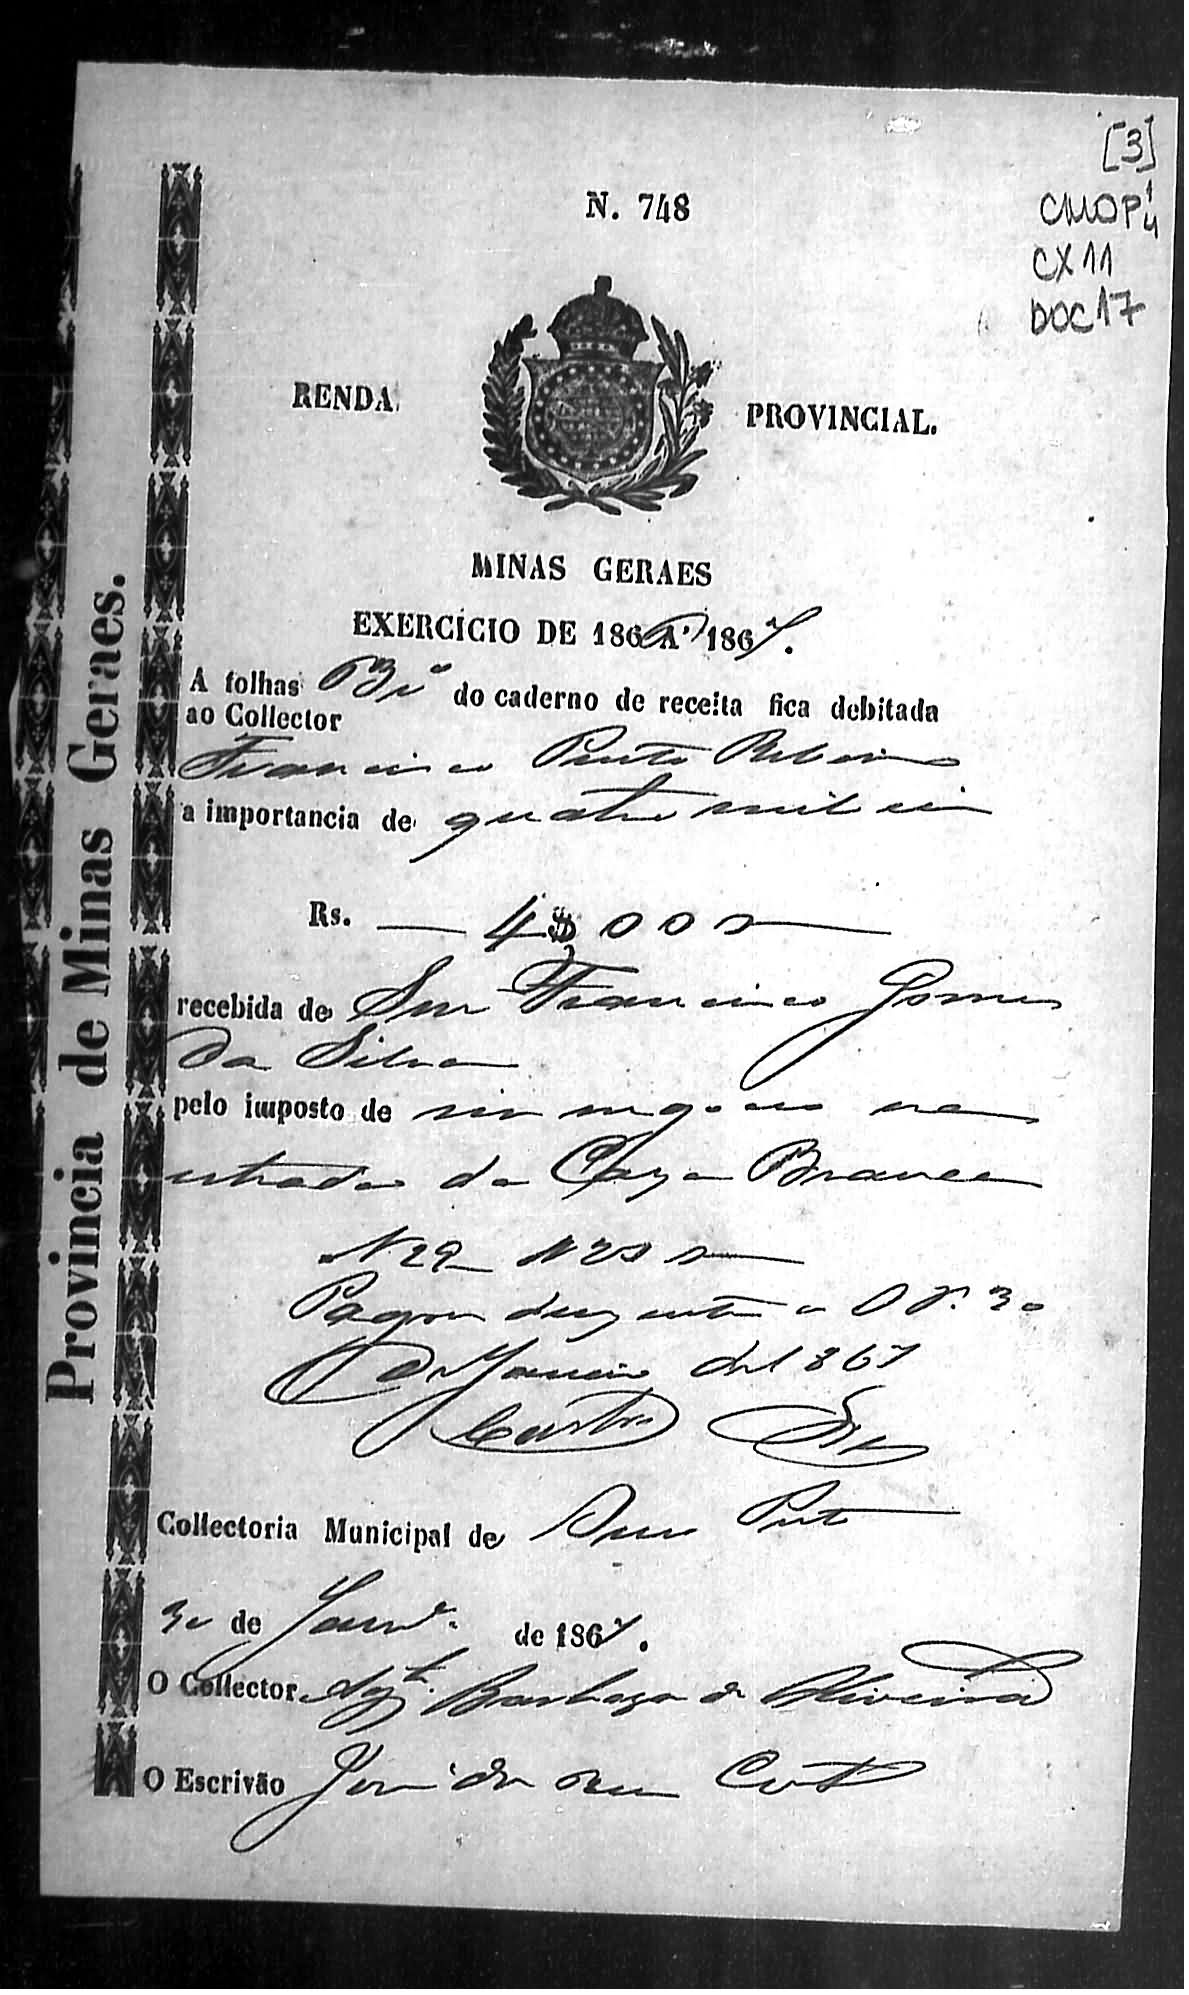 [3]
CMOP 1/4
CX 11
DOC 17
N. 748
RENDA PROVINCIAL.
MINAS GERAES
EXERCICIO DE 186 A 1867.
A folhas do caderno de receita fica debitada
ao Collector
Francisco Pinto Ribeiro
a importancia de quatro mil reis
Rs. — 4$000
recebida de Snr Francisco Gomes
da Silva
pelo imposto de negocio na
estrada da Caza Branca
N 29
Pagou duzentos O P. 30
de Janeiro de 1867
Castro
Collectoria Municipal de Ouro Preto
30 de Janr.º de 1867.
O Collector Barboza de Oliveira
O Escrivão
Provincia de Minas Geraes.